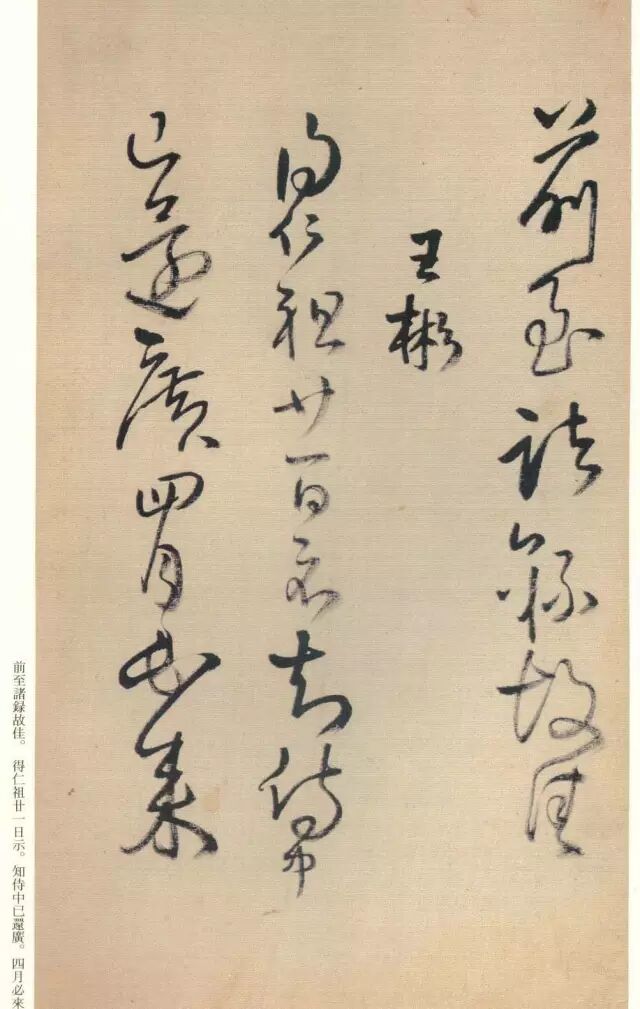 前至諸錄故佳
王彬
得仁祖廿一日示知侍中
已還廣四月必來
前至諸録故佳。得仁祖廿一日示。知侍中已還廣。四月必來